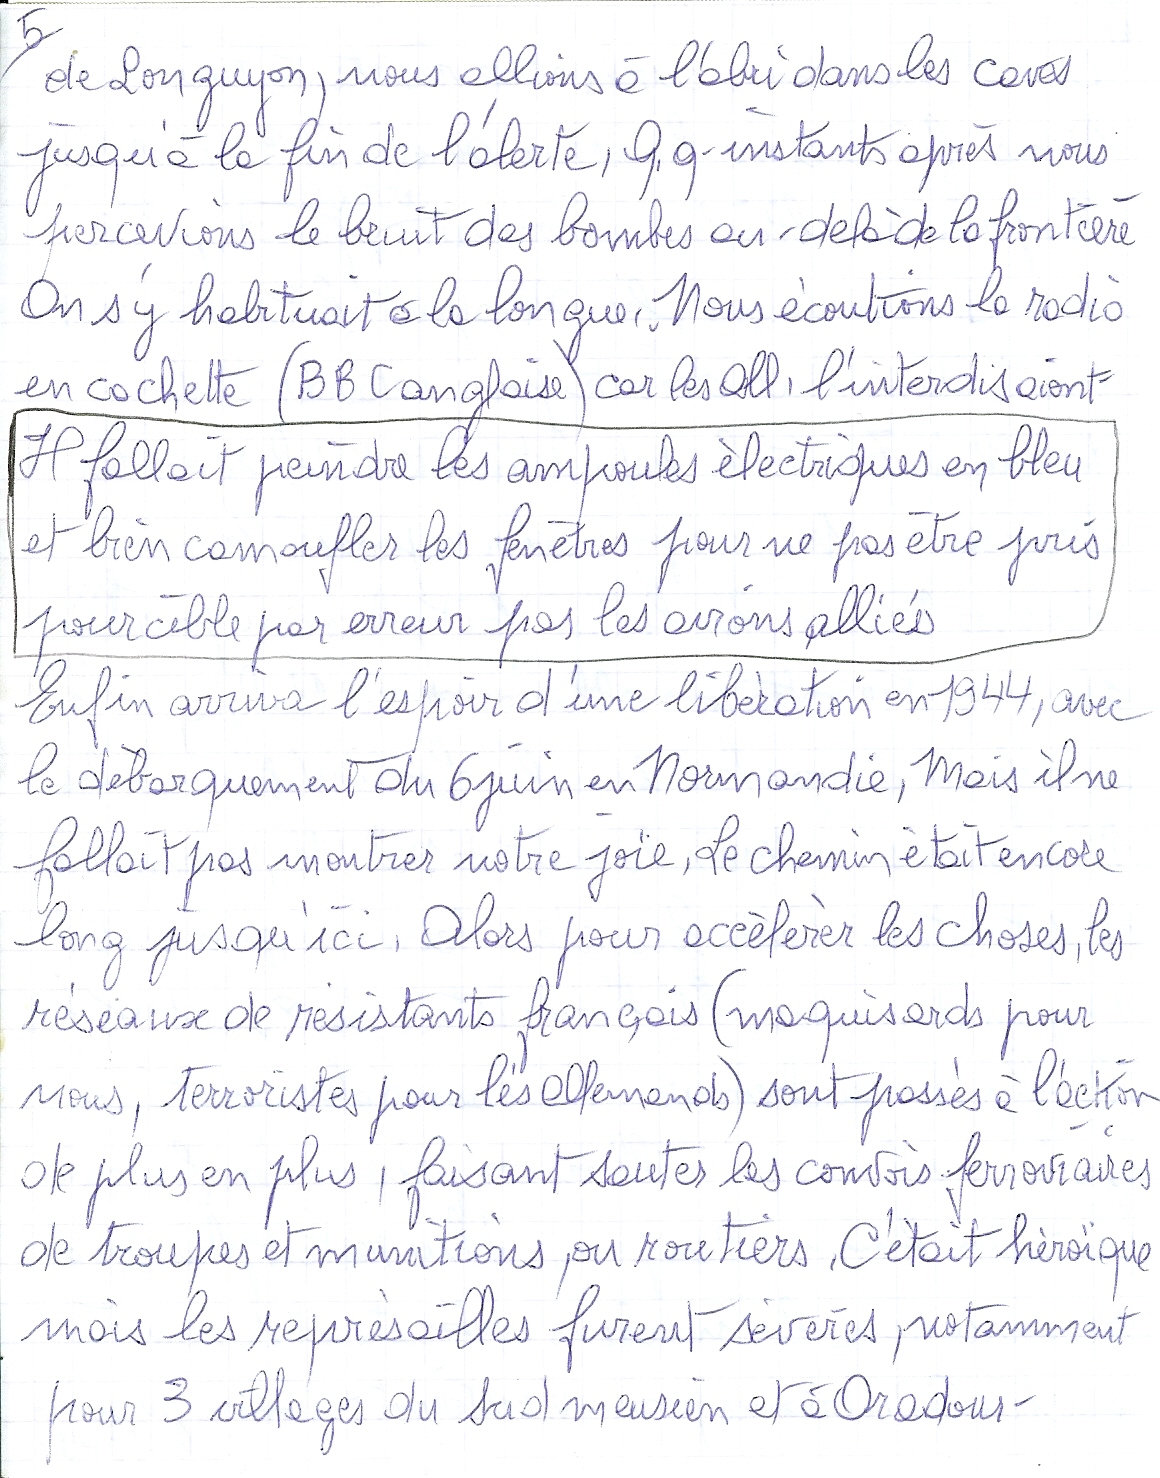 5
de Longuyon, nous allions à l'abri dans les caves
jusqu'à la fin de l'alerte, Q.q. instants après nous
percevions le bruit des bombes au-delà de la frontière
On s'y habituait à la longue. Nous écoutions la radio
en cachette (BBC anglaise) car les All. l'interdisaient
Il fallait peindre les ampoules électriques en bleu
et bien camoufler les fenêtres pour ne pas être pris
pour cible par erreur pas les avions alliés
Enfin arriva l'espoir d'une libération en 1944, avec
le débarquement du 6 juin en Normandie, Mais il ne
fallait pas montrer notre joie, Le chemin était encore
long jusqu'ici. Alors pour accélérer les choses, les
réseaux de résistants français (maquisards pour
nous, terroristes pour les allemands) sont passés à l'action
de plus en plus, faisant sauter les convois ferroviaires
de troupes et munitions, ou routiers. C'était héroïque
mais les représailles furent sévères, notamment
pour 3 villages du sud meusien et à Oradour-